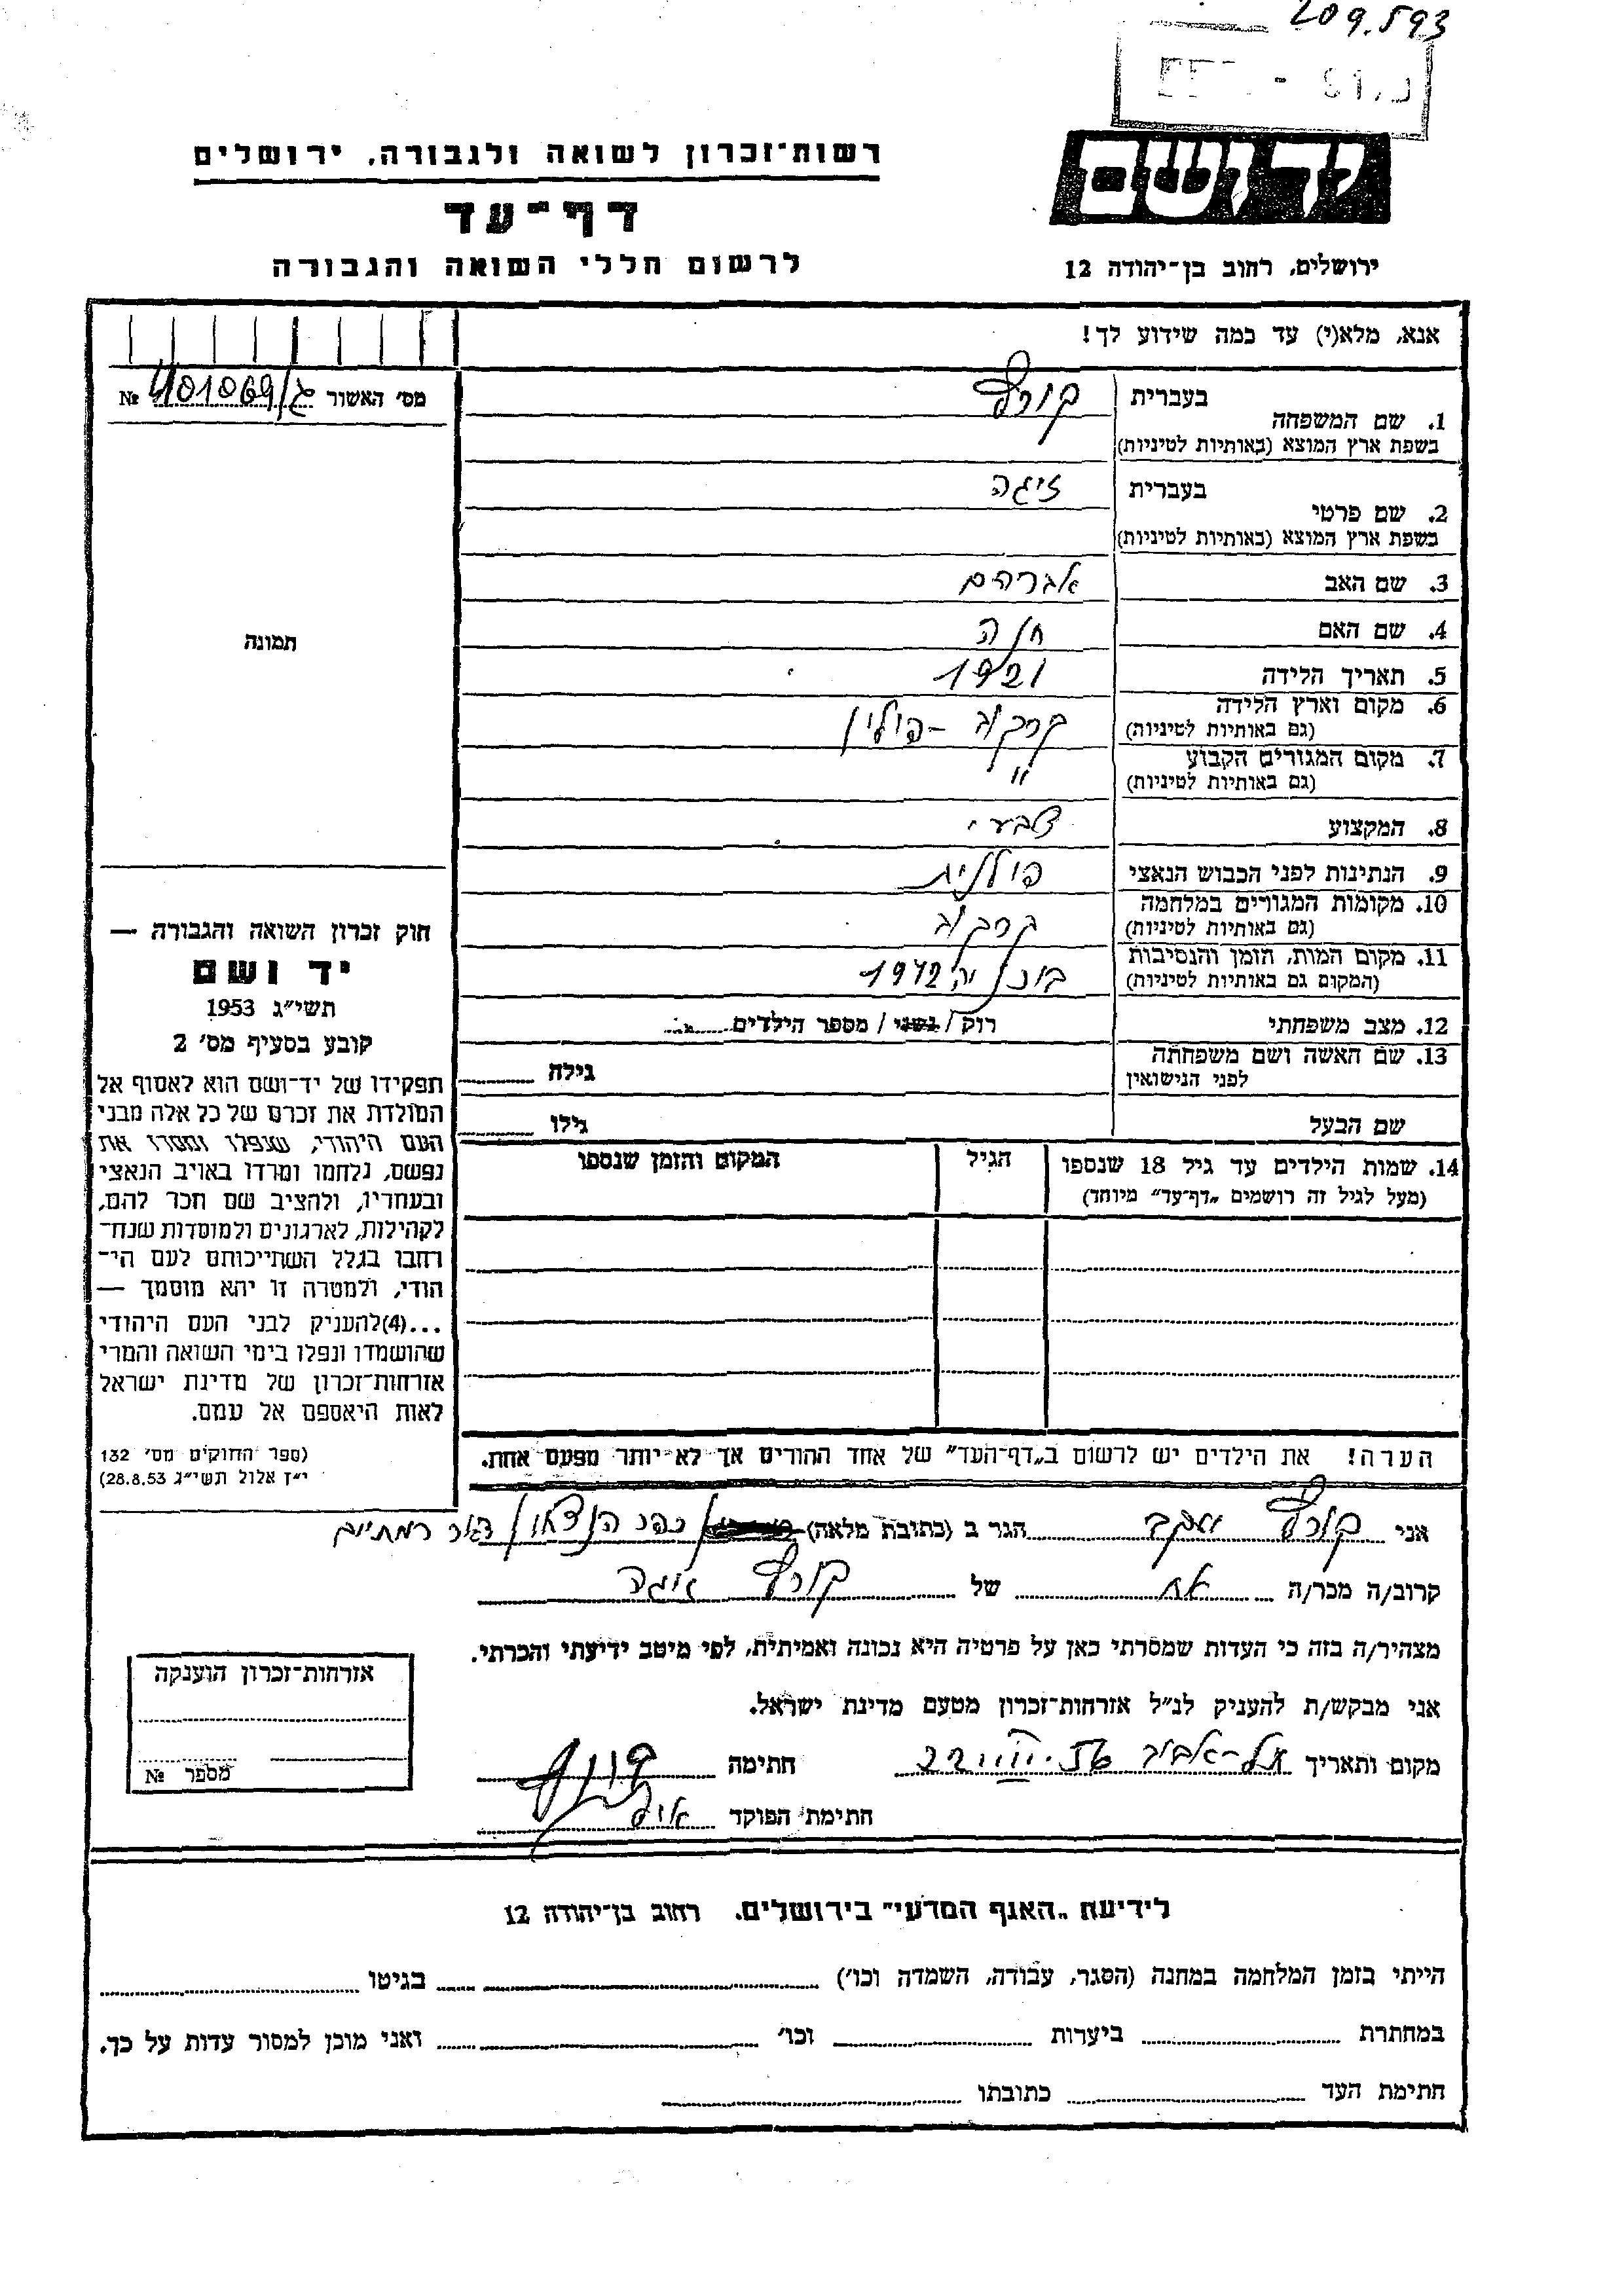 209.593
יד ושם
רשות־זכרון לשואה ולגבורה, ירושלים
דף־עד
לרשום חללי השואה והגבורה
ירושלים, רחוב בן־יהודה 12
אנא, מלא(י) עד כמה שידוע לך!
מס' האשור ג/401069 №
1. שם המשפחה
בעברית קורץ
בשפת ארץ המוצא (באותיות לטיניות)
2. שם פרטי
בעברית זיגה
בשפת ארץ המוצא (באותיות לטיניות)
3. שם האב אברהם
4. שם האם חנה
5. תאריך הלידה 1921
6. מקום וארץ הלידה קרקוב - פולין
(גם באותיות לטיניות)
7. מקום המגורים הקבוע "
(גם באותיות לטיניות)
8. המקצוע צבעי
9. הנתינות לפני הכבוש הנאצי פולנית
10. מקומות המגורים במלחמה קרקוב
(גם באותיות לטיניות)
11. מקום המות, הזמן והנסיבות 1942
(המקום גם באותיות לטיניות)
12. מצב משפחתי רוק / נשוי / מספר הילדים
13. שם האשה ושם משפחתה
לפני הנישואין גילה
שם הבעל גילו
14. שמות הילדים עד גיל 18 שנספו הגיל המקום והזמן שנספו
(מעל לגיל זה רושמים „דף־עד" מיוחד)
הערה! את הילדים יש לרשום ב„דף־העד" של אחד ההורים אך לא יותר מפעם אחת.
תמונה
חוק זכרון השואה והגבורה —
יד ושם
תשי"ג 1953
קובע בסעיף מס' 2
תפקידו של יד־ושם הוא לאסוף אל
המולדת את זכרם של כל אלה מבני
העם היהודי, שנפלו ומסרו את
נפשם, נלחמו ומרדו באויב הנאצי
ובעוזריו, ולהציב שם וזכר להם,
לקהילות, לארגונים ולמוסדות שנח־
רבו בגלל השתייכותם לעם הי־
הודי, ולמטרה זו יהא מוסמך —
...(4)להעניק לבני העם היהודי
שהושמדו ונפלו בימי השואה והמרי
אזרחות־זכרון של מדינת ישראל
לאות היאספם אל עמם.
(ספר החוקים מס' 132
י"ז אלול תשי"ג 28.8.53)
אני קורץ יעקב הגר ב (כתובת מלאה) נפה הנצחון דגור רמתיים
קרוב/ה מכר/ה אח של קורץ זיגה
מצהיר/ה בזה כי העדות שמסרתי כאן על פרטיה היא נכונה ואמיתית, לפי מיטב ידיעתי והכרתי.
אני מבקש/ת להעניק לנ"ל אזרחות־זכרון מטעם מדינת ישראל.
מקום ותאריך תל-אביב 22.VIII.56 חתימה
חתימת הפוקד
אזרחות־זכרון הוענקה
מספר №
לידיעת „האגף המדעי" בירושלים. רחוב בן־יהודה 12
הייתי בזמן המלחמה במחנה (הסגר, עבודה, השמדה וכו') בגיטו
במחתרת ביערות וכו' ואני מוכן למסור עדות על כך.
חתימת העד כתובתו